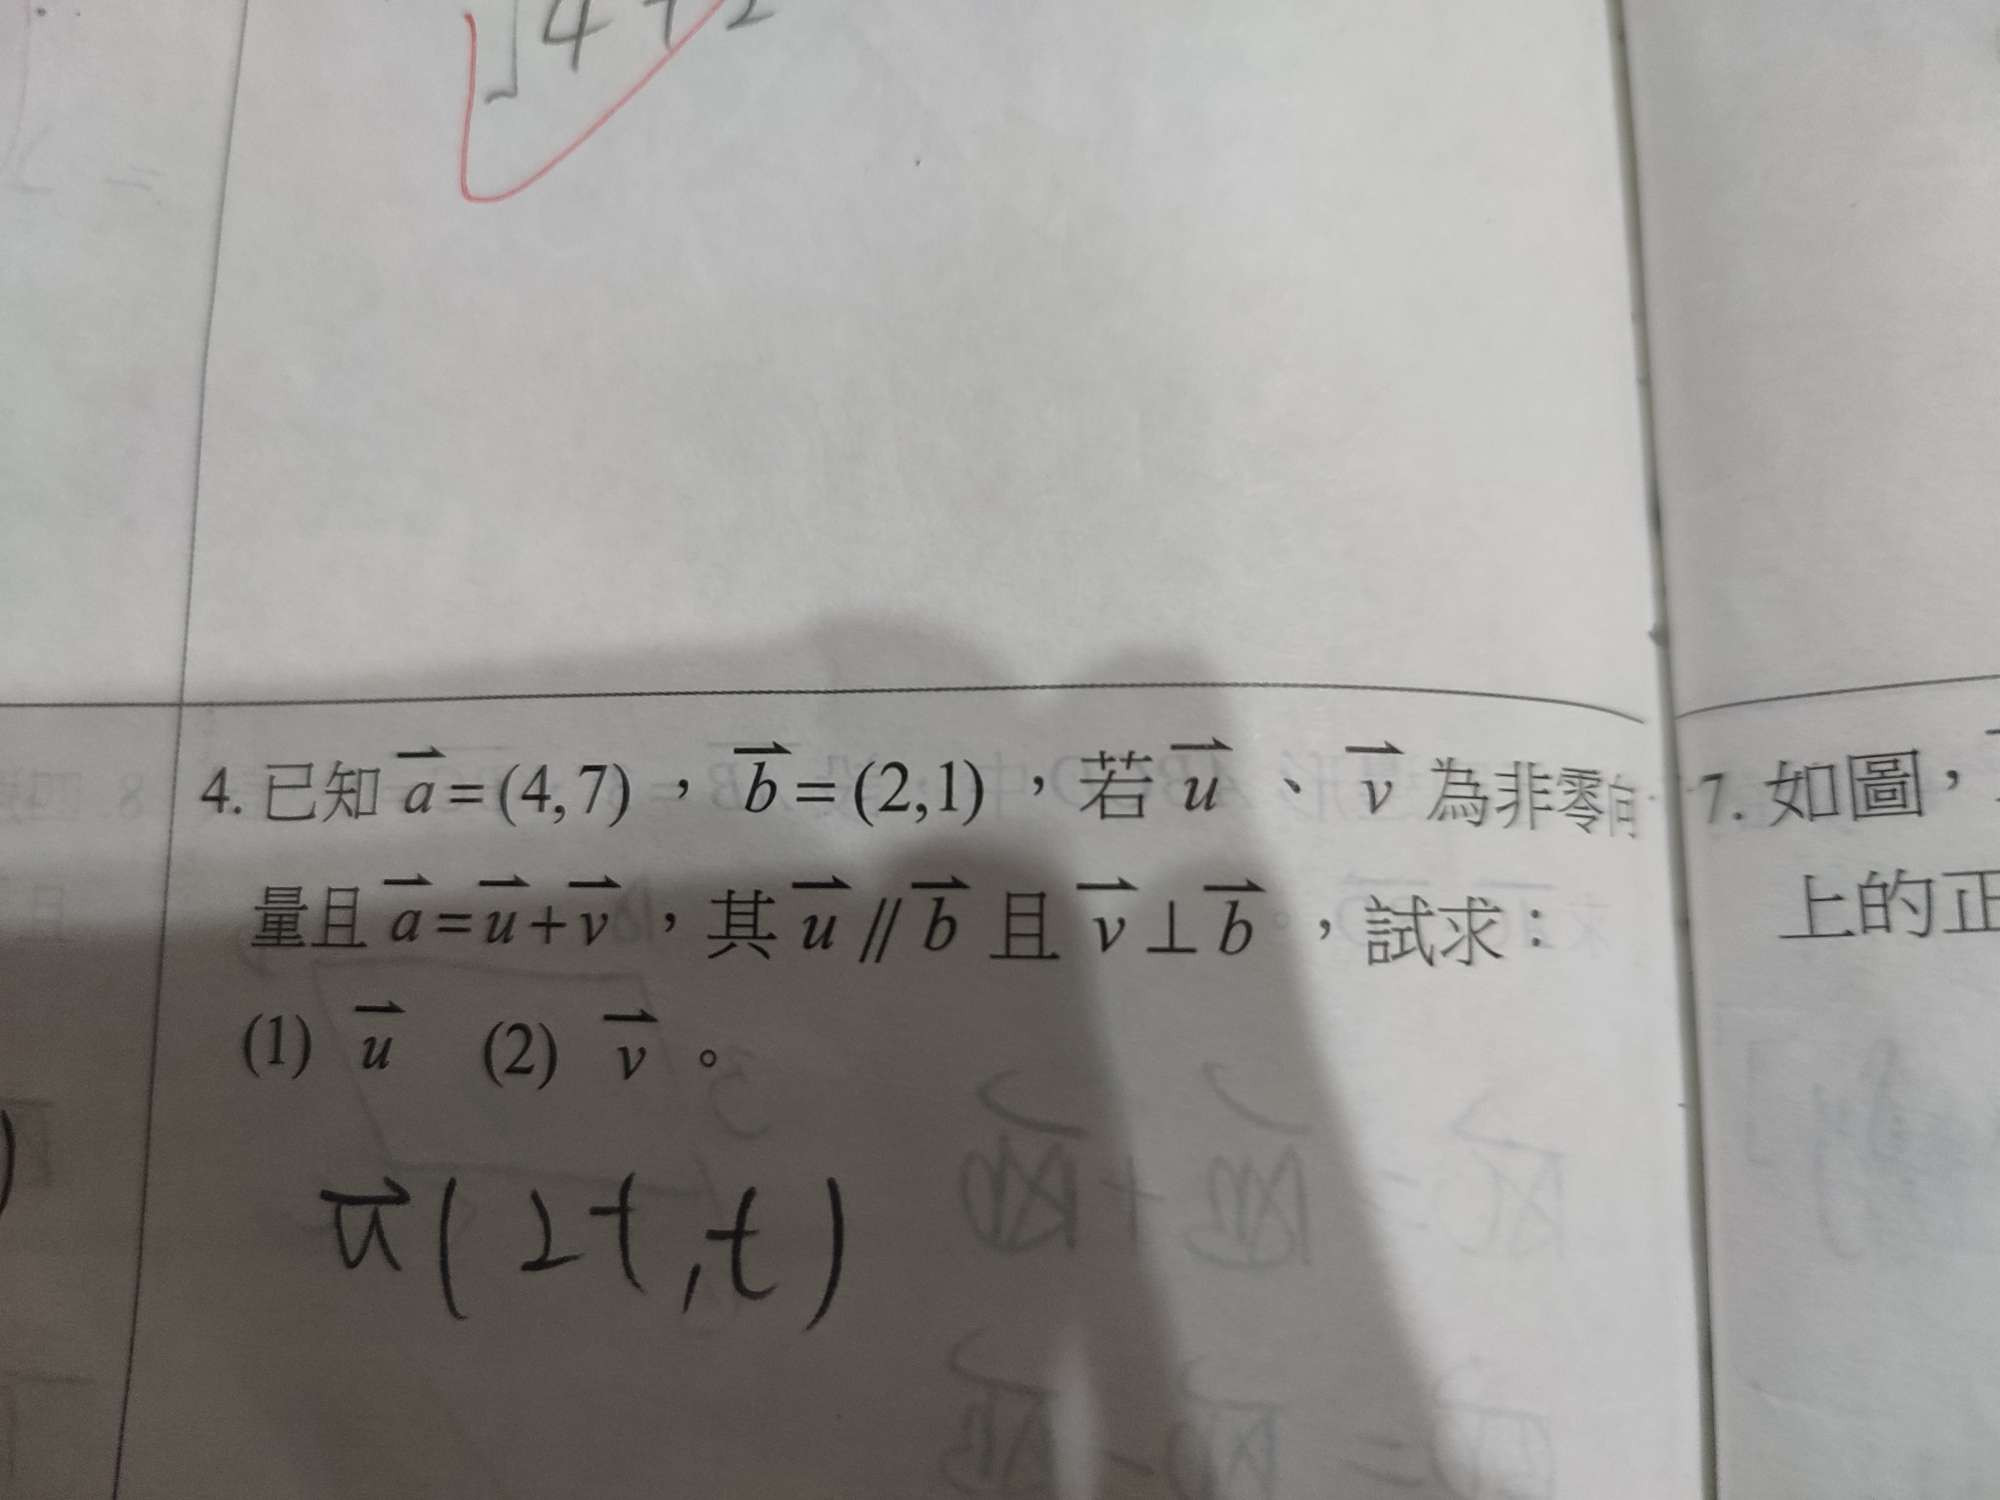 √4+2
4. 已知 a⃗ = (4,7)，b⃗ = (2,1)，若 u⃗、v⃗ 為非零向
量且 a⃗ = u⃗ + v⃗，其 u⃗ // b⃗ 且 v⃗ ⊥ b⃗，試求：
(1) u⃗ (2) v⃗。
u⃗ (2t, t)
7. 如圖，
上的正